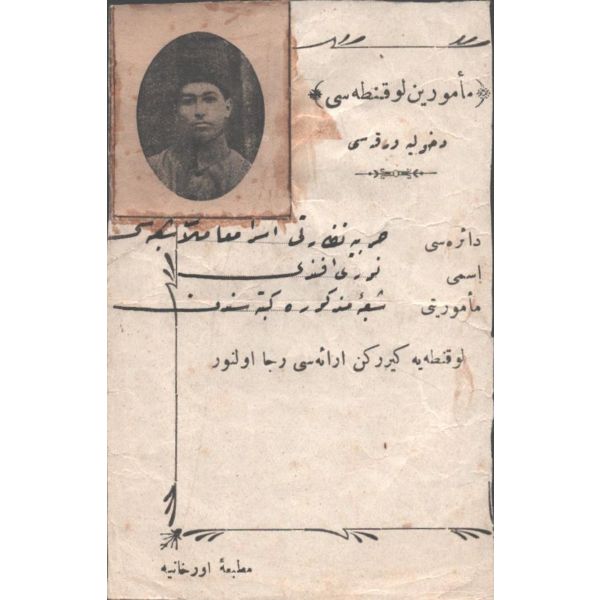 ﴿مأمورین لوقنطه سی﴾
دخولیه ورقه سی
دائره سی حربیه نظارتی اسرا معاملات شعبه سی
اسمی نوری افندی
مأموریتی شعبهٔ مذکوره کتبه سندن
لوقنطه یه کیررکن ارائه سی رجا اولنور
مطبعهٔ اورخانیه